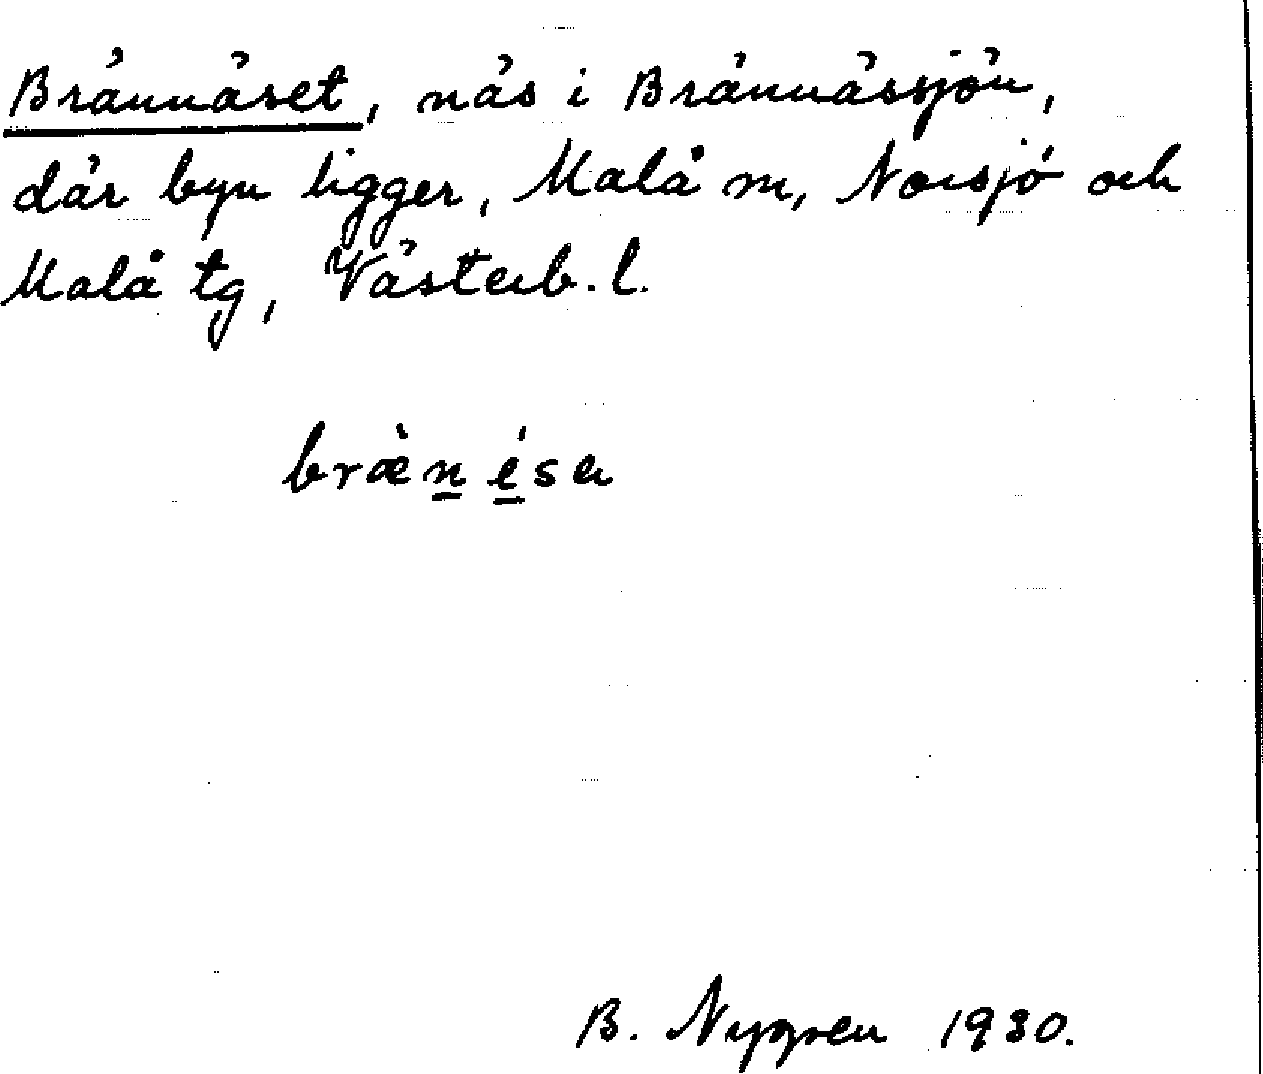 Brännäset, näs i Brännässjön,
där byn ligger, Malå sn, Norsjö och
Malå tg, Västerb. l.
bræ̀n ésa
B. Nygren 1930.